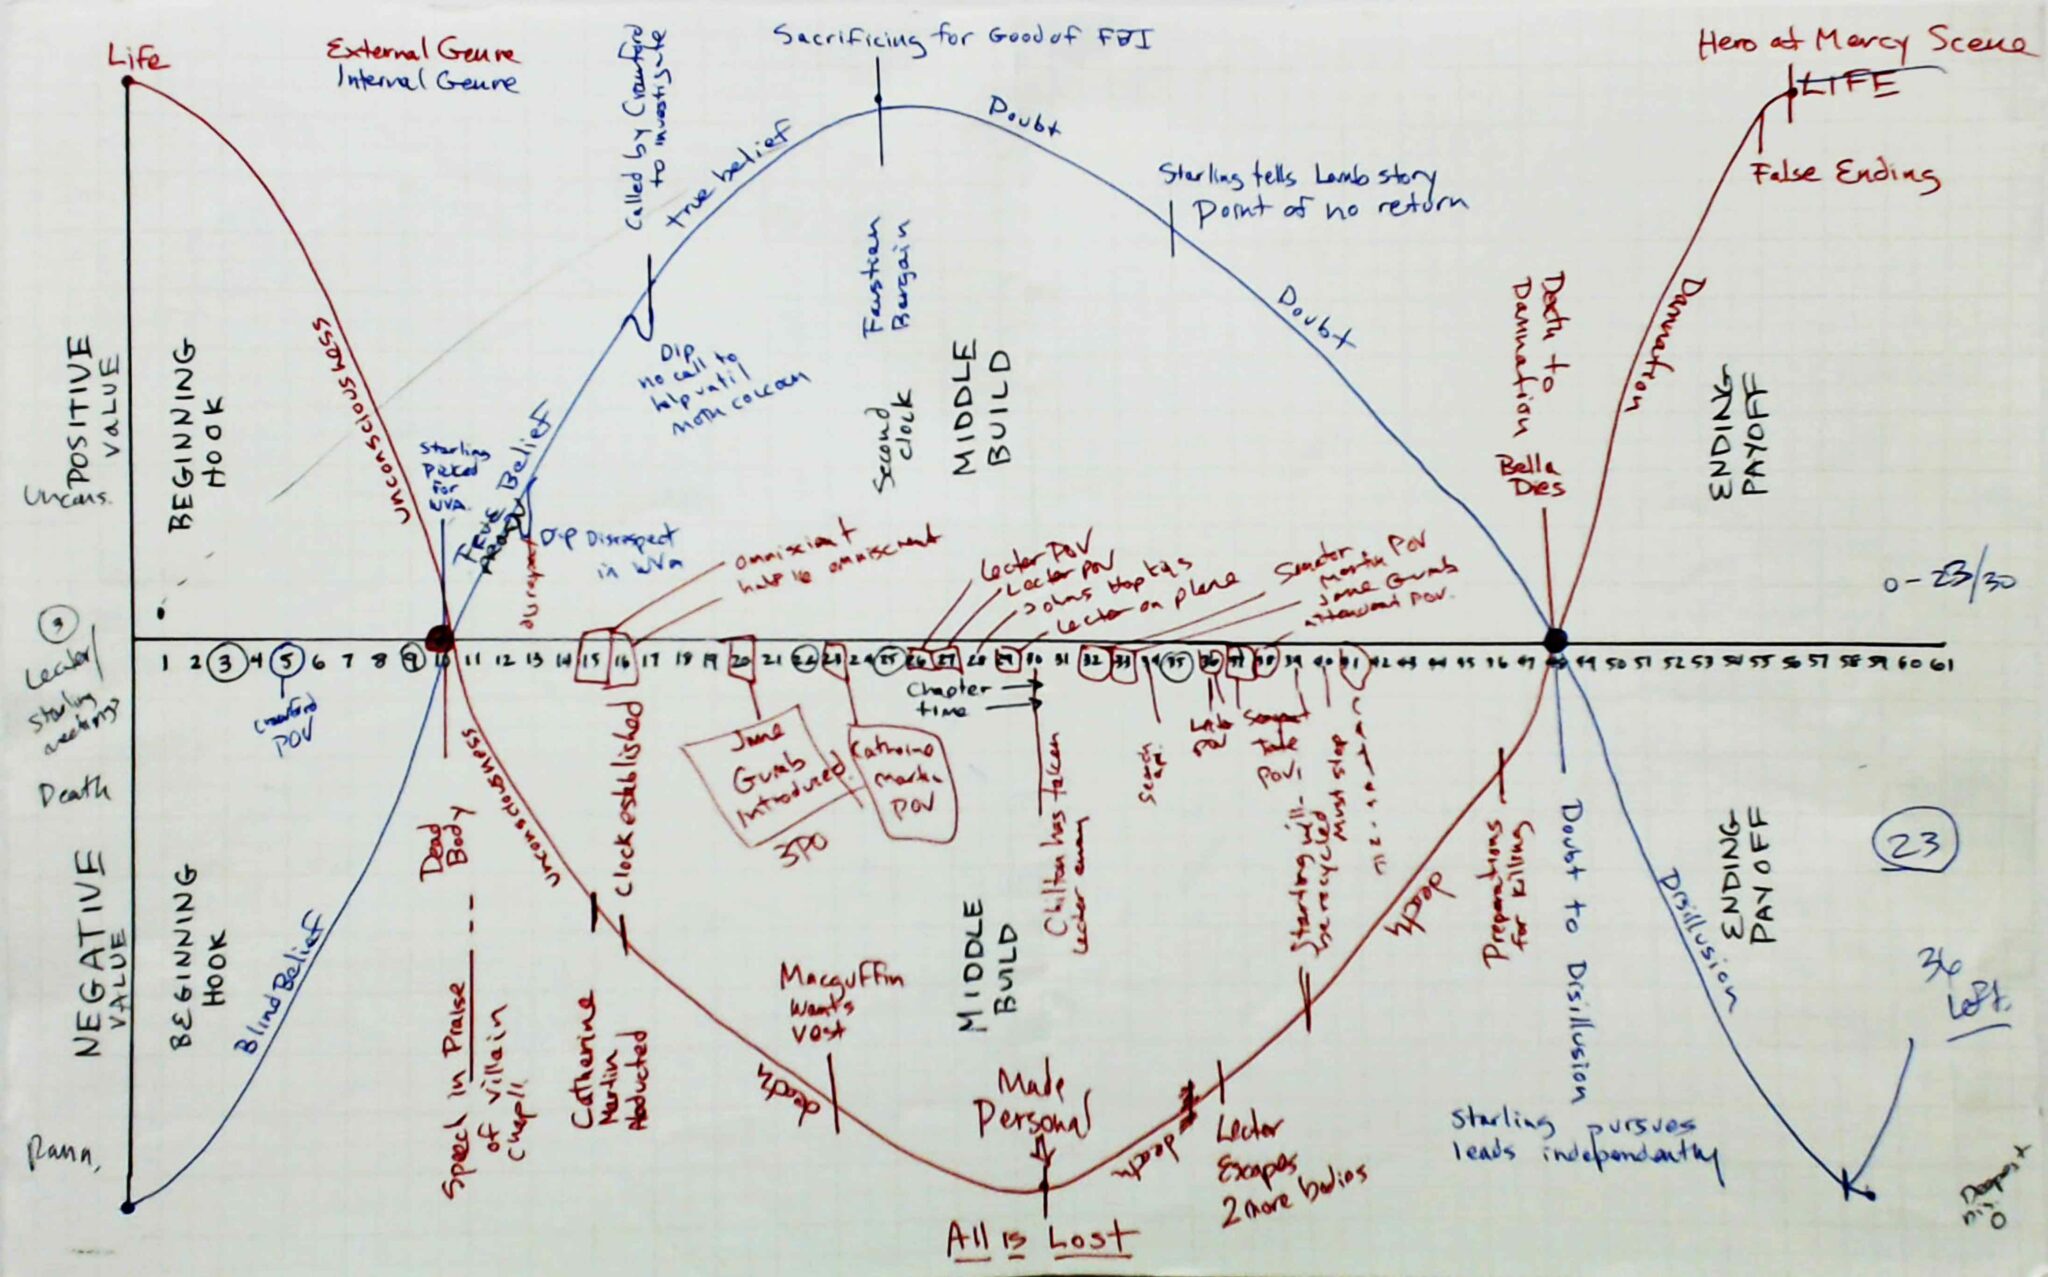 Life
External Genre
Internal Genre
Called by Crawford
to investigate
Sacrificing for Good of FBI
Hero at Mercy Scene
LIFE
False Ending
true belief
Doubt
Starling tells Lamb story
Point of no return
Doubt
Faustian
Bargain
Second
clock
MIDDLE
BUILD
Death to
Damnation
Bella
Dies
Damnation
ENDING
PAYOFF
POSITIVE
VALUE
BEGINNING
HOOK
UNCONSCIOUSNESS
Starling
Picked
for
WVA.
Belief
Dip
no call to
help until
moth cocoon
Dip Disrespect
in WVa
omniscient
omniscient
Lecter POV
Lecter POV
Johns Hopkins
Lecter on plane
Senator
Martin POV
Jame Gumb
POV.
Uncons.
0-23/30
3
Lecter/
Starling
meetings
1 2 3 4 5 6 7 8 9 10 11 12 13 14 15 16 17 18 19 20 21 22 23 24 25 26 27 28 29 30 31 32 33 34 35 36 37 38 39 40 41 42 43 44 45 46 47 48 49 50 51 52 53 54 55 56 57 58 59 60 61
Crawford
POV
Chapter
time
Jame
Gumb
Introduced
Catherine
Martin
POV
Clock established
Chilton has taken
Lecter away
Search
POV
Tate
POV
Starling will
be recycled
Must stop
Death
NEGATIVE
VALUE
BEGINNING
HOOK
Blind Belief
Dead
Body
Speech in Praise
of Villain
Chap 11
UNCONSCIOUSNESS
Catherine
Martin
Abducted
Macguffin
Wants
Vest
death
MIDDLE
BUILD
Made
Personal
All is Lost
death
Lecter
Escapes
2 more bodies
death
Preparations
for killing
Doubt to Disillusion
Starling pursues
leads independently
Disillusion
ENDING
PAYOFF
23
36
Left.